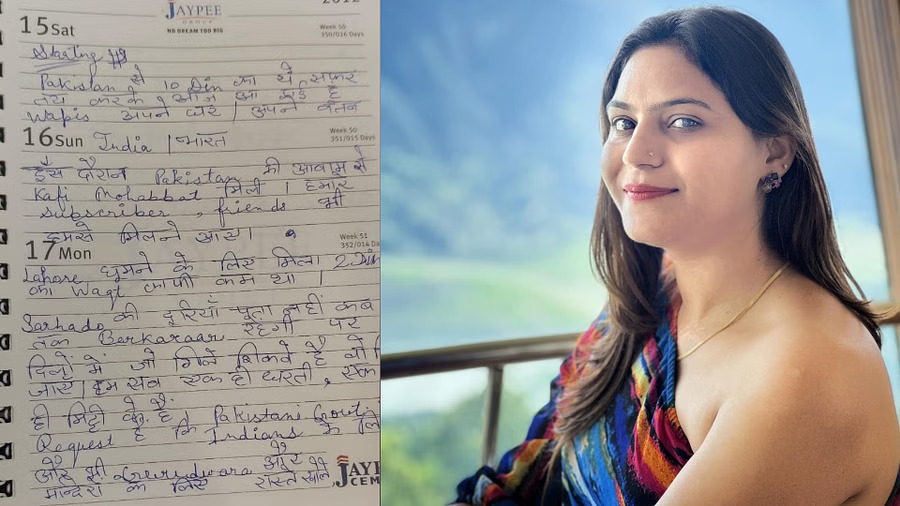 2012
JAYPEE
GROUP
NO DREAM TOO BIG
15 Sat
Week 50
350/016 Days
Starting
Pakistan से 10 Din का ये सफर
तय करके आज आ गई है
Wapis अपने घर । अपने वतन
16 Sun
Week 50
351/015 Days
India । भारत
इस दौरान Pakistan की आवाम से
Kafi Mohabbat मिली । हमारे
Subscriber , friends भी
हमसे मिलने आए ।
17 Mon
Week 51
352/014 Da
Lahore घूमने के लिए मिला 2 Din
का Waqt काफी कम था ।
Sarhado की दूरियाँ पता नहीं कब
तक Berkaraar रहेंगी पर
दिलों में जो गिले शिकवे है वो
जाए । हम सब एक ही धरती , एक
ही मिट्टी के है ।
Pakistani Govt.
Request है कि Indians के लि
और भी Gurudwara और
मन्दिरों के लिए रास्ते खोले
JAYPE
CEM